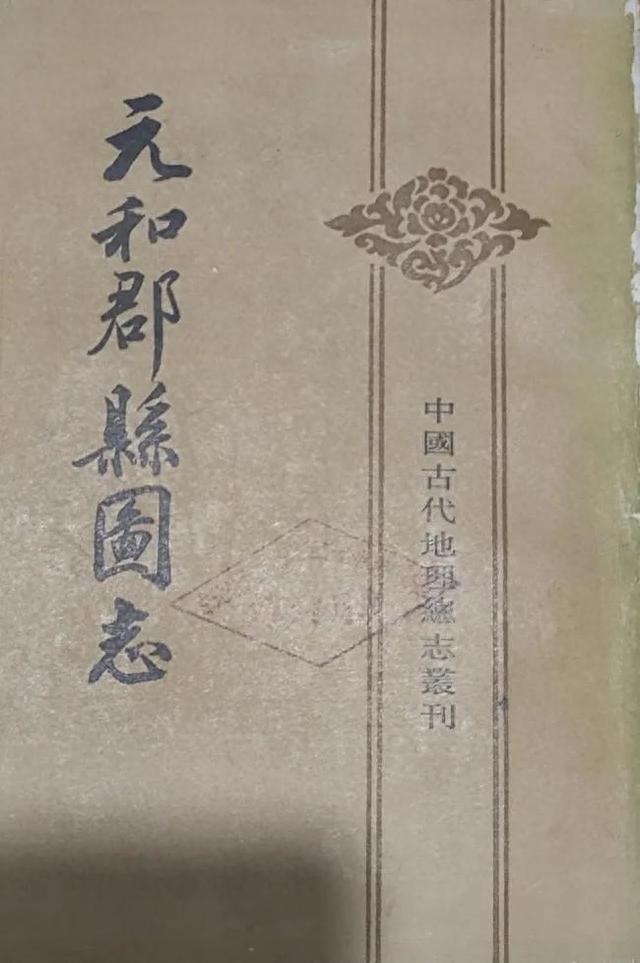 中國古代地理總志叢刊
元和郡縣圖志